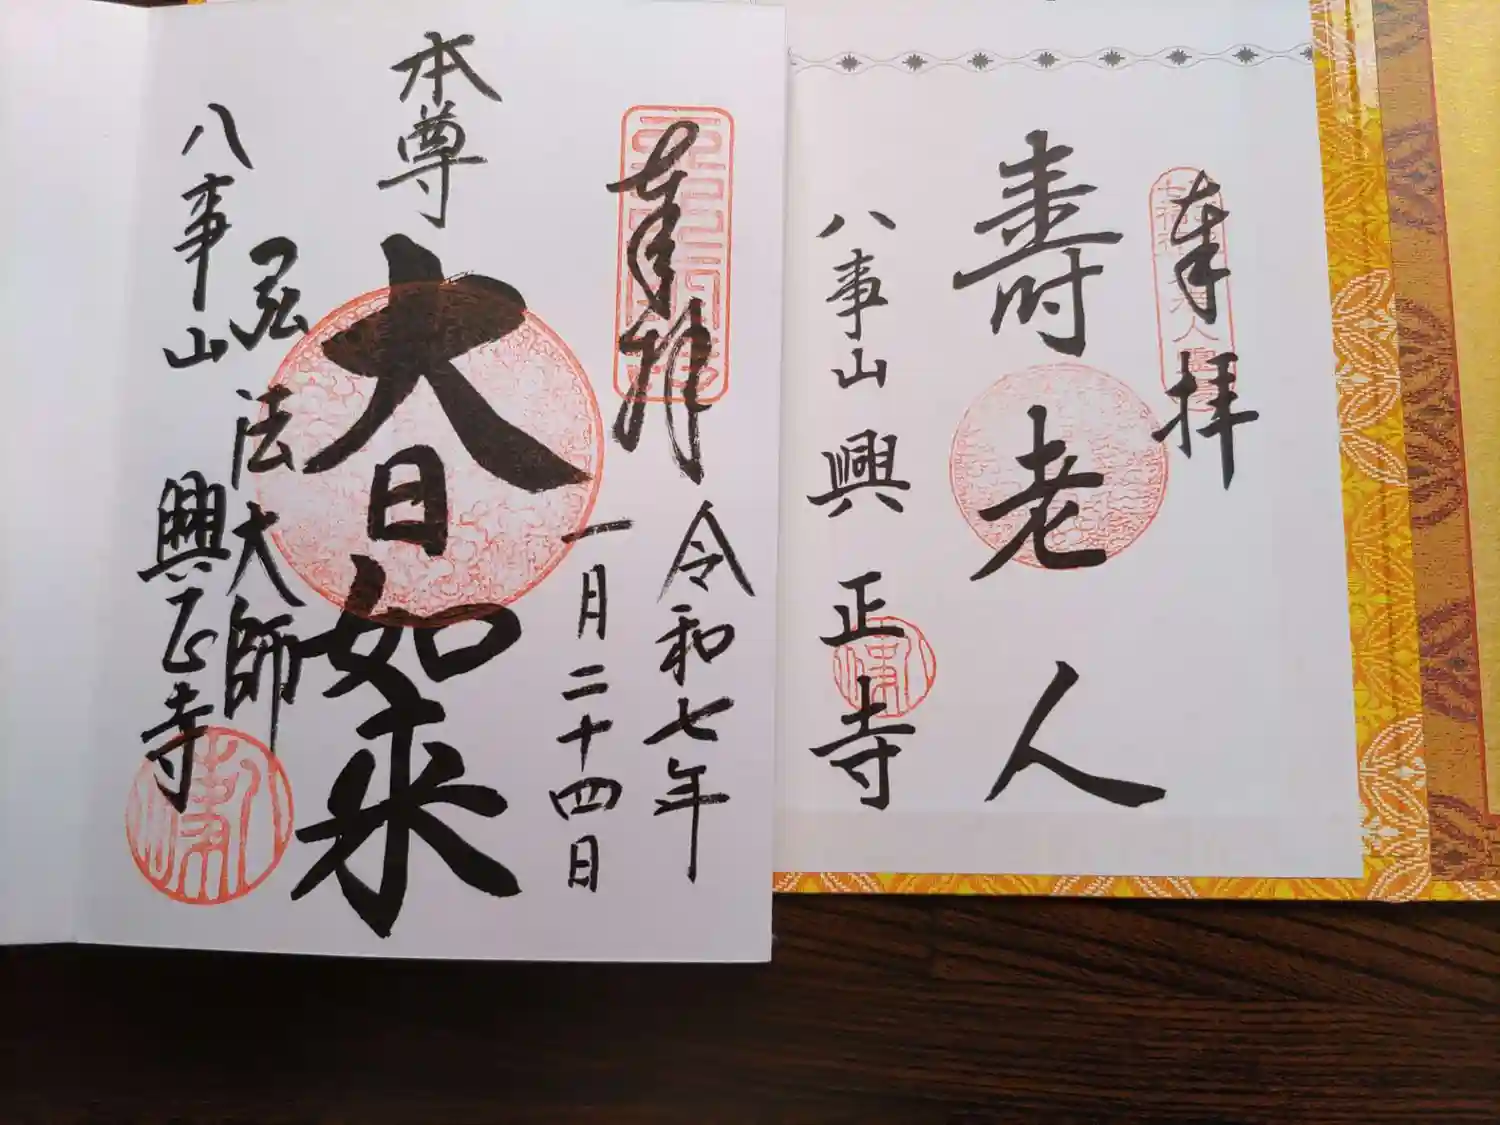 奉拝
令和七年
一月二十四日
本尊
大日如来
弘法大師
八事山
興正寺
奉拝
壽老人
八事山
興正寺